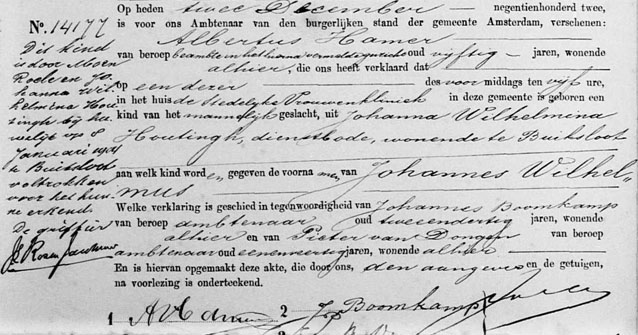 Op heden twee December negentienhonderd twee,
is voor ons Ambtenaar van den burgerlijken stand der gemeente Amsterdam, verschenen:
Albertus Hamer
van beroep beambte in het na vermelde gesticht oud vijftig jaren, wonende
alhier, die ons heeft verklaard dat
op een dezer des voor middags ten vijf ure,
in het huis de Stedelyke Vrouwenkliniek in deze gemeente is geboren een
kind van het mannelijk geslacht, uit Johanna Wilhelmina
Houtingh, dienstbode, wonende te Buiksloot
aan welk kind word en gegeven de voorna men van Johannes Wilhel„
mus
Welke verklaring is geschied in tegenwoordigheid van Johannes Boomkamp
van beroep ambtenaar oud tweeendertig jaren, wonende
alhier en van Pieter van Dongen van beroep
ambtenaar oud eenenveertig jaren, wonende alhier
En is hiervan opgemaakt deze akte, die door ons, den aangever en de getuigen,
na voorlezing is onderteekend.
1 AHamer 2 Boomkamp
No. 14177
Dit kind
is door
Roele en Jo„
hanna Wil„
helmina Hou„
tingh bij hu„
welijk op 8
Januari 1901
te Buiksloot
voltrokken
voor het hun„
ne erkend.
De griffier